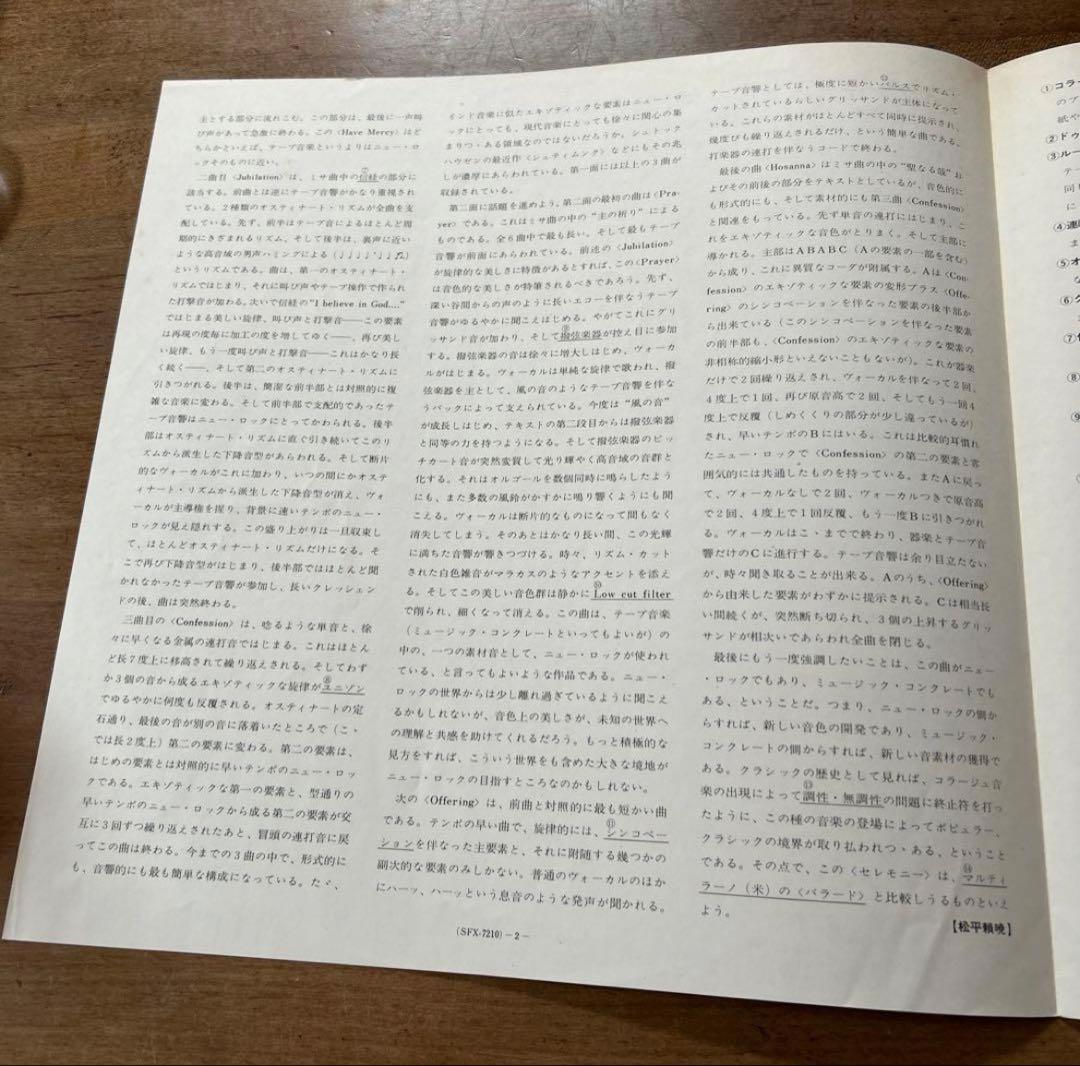 主とする部分に流れこむ。この部分は、最後に一声叫
び声があって急激に終わる。この〈Have Mercy〉はど
ちらかといえば、テープ音楽というよりはニュー・ロ
ックそのものに近い。
二曲目〈Jubilation〉は、ミサ曲中の信経の部分に
該当する。前曲とは逆にテープ音響がかなり重視され
ている。2種類のオスティナート・リズムが全曲を支
配している。先ず、前半はテープ音によるほとんど周
期的にきざまれるリズム、そして後半は、裏声に近い
ような高音域の男声ハミングによる
というリズムである。曲は、第一のオスティナート・
リズムではじまり、それに叫び声やテープ操作で作られ
た打撃音が加わる。次いで信経の"I believe in God...."
ではじまる美しい旋律、叫び声と打撃音——この要素
は再現の度毎に加工の度を増してゆく——、再び美し
い旋律、もう一度叫び声と打撃音——これはかなり長
く続く——、そして第二のオスティナート・リズムに
引きつがれる。後半は、簡潔な前半部とは対照的に複
雑な音楽に変わる。そして前半部で支配的であったテ
ープ音響はニュー・ロックにとってかわられる。後半
部はオスティナート・リズムに直ぐ引き続いてこのリ
ズムから派生した下降音型があらわれる。そして断片
的なヴォーカルがこれに加わり、いつの間にかオステ
ィナート・リズムから派生した下降音型が消え、ヴォ
ーカルが主導権を握り、背景に速いテンポのニュー・
ロックが見え隠れする。この盛り上がりは一旦収束し
て、ほとんどオスティナート・リズムだけになる。そ
こで再び下降音型がはじまり、後半部ではほとんど聞
かれなかったテープ音響が参加し、長いクレッシェン
ドの後、曲は突然終わる。
三曲目の〈Confession〉は、唸るような単音と、徐
々に早くなる金属の連打音ではじまる。これはほとん
ど長7度上に移高されて繰り返えされる。そしてわず
か3個の音から成るエキゾティックな旋律が⑧ユニゾン
でゆるやかに何度も反覆される。オスティナートの定
石通り、最後の音が別の音に落着いたところで(こゝ
では長2度上)第二の要素に変わる。第二の要素は、
はじめの要素とは対照的に早いテンポのニュー・ロッ
クである。エキゾティックな第一の要素と、型通りの
早いテンポのニュー・ロックから成る第二の要素が交
互に3回ずつ繰り返えされたあと、冒頭の連打音に戻
ってこの曲は終わる。今までの3曲の中で、形式的に
も、音響的にも最も簡単な構成になっている。たゞ、
インド音楽に似たエキゾティックな要素はニュー・ロ
ックにとっても、現代音楽にとっても徐々に関心の集
まりつゝある領域なのではないだろうか。シュトック
ハウゼンの最近作〈シュティムンク〉などにもその兆
しが濃厚にあらわれている。第一面には以上の3曲が
収録されている。
第二面に話題を進めよう。第二面の最初の曲は〈Pra-
yer〉である。これはミサ曲の中の"主の祈り"による
ものである。全6曲中で最も長い。そして最もテープ
音響が前面にあらわれている。前述の〈Jubilation〉
が旋律的な美しさに特徴があるとすれば、この〈Prayer〉
は音色的な美しさが特筆されるべきであろう。先ず、
深い谷間からの声のように長いエコーを伴なうテープ
音響がゆるやかに聞こえはじめる。やがてこれにグリ
ッサンド音が加わり、そして⑨撥弦楽器が控え目に参加
する。撥弦楽器の音は徐々に増大しはじめ、ヴォーカ
ルがはじまる。ヴォーカルは単純な旋律で歌われ、撥
弦楽器を主として、風の音のようなテープ音響を伴な
うバックによって支えられている。今度は"風の音"
が成長しはじめ、テキストの第二段目からは撥弦楽器
と同等の力を持つようになる。そして撥弦楽器のピッ
チカート音が突然変質して光り輝やく高音域の音群と
化する。それはオルゴールを数個同時に鳴らしたよう
にも、また多数の風鈴がかすかに鳴り響くようにも聞
こえる。ヴォーカルは断片的なものになって間もなく
消失してしまう。そのあとはかなり長い間、この光輝
に満ちた音響が響きつづける。時々、リズム・カット
された白色雑音がマラカスのようなアクセントを添え
る。そしてこの美しい音色群は静かに⑩Low cut filter
で削られ、細くなって消える。この曲は、テープ音楽
(ミュージック・コンクレートといってもよいが)の
中の、一つの素材音として、ニュー・ロックが使われ
ている、と言ってもよいような作品である。ニュー・
ロックの世界からは少し離れ過ぎているように聞こえ
るかもしれないが、音色上の美しさが、未知の世界へ
の理解と共感を助けてくれるだろう。もっと積極的な
見方をすれば、こういう世界をも含めた大きな境地が
ニュー・ロックの目指すところなのかもしれない。
次の〈Offering〉は、前曲と対照的に最も短かい曲
である。テンポの早い曲で、旋律的には、⑪シンコペー
ションを伴なった主要素と、それに附随する幾つかの
副次的な要素のみしかない。普通のヴォーカルのほか
にハーッ、ハーッという息音のような発声が聞かれる。
テープ音響としては、極度に短かい⑫パルスでリズム・
カットされているらしいグリッサンドが主体になって
いる。これらの素材がほとんどすべて同時に提示され、
幾度びも繰り返えされるだけ、という簡単な曲である。
打楽器の連打を伴なうコードで終わる。
最後の曲〈Hosanna〉はミサ曲の中の"聖なる哉"お
よびその前後の部分をテキストとしているが、音色的に
も形式的にも、そして素材的にも第三曲〈Confession〉
と関連をもっている。先ず単音の連打にはじまり、こ
れをエキゾティックな音色がとりまく。そして主部に
導かれる。主部はABABC(Aの要素の一部を含む)
から成り、これに異質なコーダが附属する。Aは〈Con-
fession〉のエキゾティックな要素の変形プラス〈Offe-
ring〉のシンコペーションを伴なった要素の後半部か
ら出来ている(このシンコペーションを伴なった要素
の前半部も、〈Confession〉のエキゾティックな要素の
非相称的縮小形といえないこともないが)。これが器楽
だけで2回繰り返えされ、ヴォーカルを伴なって2回、
4度上で1回、再び原音高で2回、そしてもう一回4
度上で反覆(しめくくりの部分が少し違っているが)
され、早いテンポのBにはいる。これは比較的耳慣れ
たニュー・ロックで〈Confession〉の第二の要素と雰
囲気的には共通したものを持っている。またAに戻っ
て、ヴォーカルなしで2回、ヴォーカルつきで原音高
で2回、4度上で1回反覆、もう一度Bに引きつがれ
る。ヴォーカルはこゝまでで終わり、器楽とテープ音
響だけのCに進行する。テープ音響は余り目立たない
が、時々聞き取ることが出来る。Aのうち、〈Offering〉
から由来した要素がわずかに提示される。Cは相当長
い間続くが、突然断ち切られ、3個の上昇するグリッ
サンドが相次いであらわれ全曲を閉じる。
最後にもう一度強調したいことは、この曲がニュー
・ロックでもあり、ミュージック・コンクレートでも
ある、ということだ。つまり、ニュー・ロックの側か
らすれば、新しい音色の開発であり、ミュージック・
コンクレートの側からすれば、新しい音素材の獲得で
ある。クラシックの歴史として見れば、コラージュ音
楽の出現によって⑬調性・無調性の問題に終止符を打っ
たように、この種の音楽の登場によってポピュラー、
クラシックの境界が取り払われつゝある、ということ
である。その点で、この〈セレモニー〉は、⑭マルティ
ラーノ(米)の〈バラード〉と比較しうるものといえ
よう。
【松平頼暁】
(SFX-7210)−2−
①コラー
のプ
紙や
②ドゥ
③ルー
テー
同に
④連
ま
⑤オ
な
⑥ク
⑦
⑧
⑨